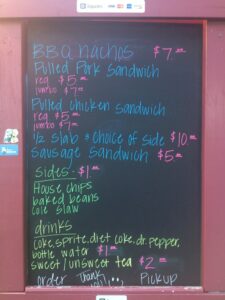 BBQ nachos $7.00
Pulled Pork Sandwich
reg $5.00
jumbo $7.00
Pulled chicken sandwich
reg $5.00
jumbo $7.00
1/2 slab & choice of side $10.00
Sausage Sandwich $5.00
sides - $1.00
House chips
baked beans
cole slaw
drinks
coke, sprite, diet coke, dr. pepper,
bottle water $1.00
sweet/unsweet tea $2.00
order Thank you!! Pickup